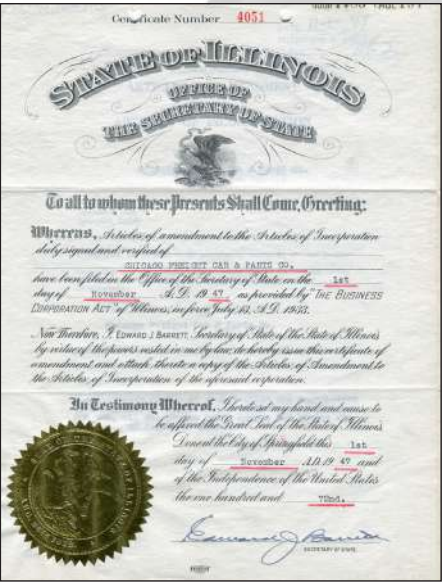 Certificate Number 4051
STATE OF ILLINOIS
OFFICE OF
THE SECRETARY OF STATE
To all to whom these Presents Shall Come, Greeting:
Whereas, Articles of amendment to the Articles of Incorporation
duly signed and verified of
CHICAGO FREIGHT CAR & PARTS CO.
have been filed in the Office of the Secretary of State on the 1st
day of November A.D. 19 47 as provided by "THE BUSINESS
CORPORATION ACT" of Illinois, in force July 13, A.D. 1933.
Now Therefore, I, EDWARD J. BARRETT, Secretary of State of the State of Illinois
by virtue of the powers vested in me by law, do hereby issue this certificate of
amendment and attach thereto a copy of the Articles of Amendment to
the Articles of Incorporation of the aforesaid corporation.
In Testimony Whereof, I hereto set my hand and cause to
be affixed the Great Seal of the State of Illinois
Done at the City of Springfield this 1st
day of November A.D. 19 47 and
of the Independence of the United States
the one hundred and 72nd.
Edward J Barrett
SECRETARY OF STATE